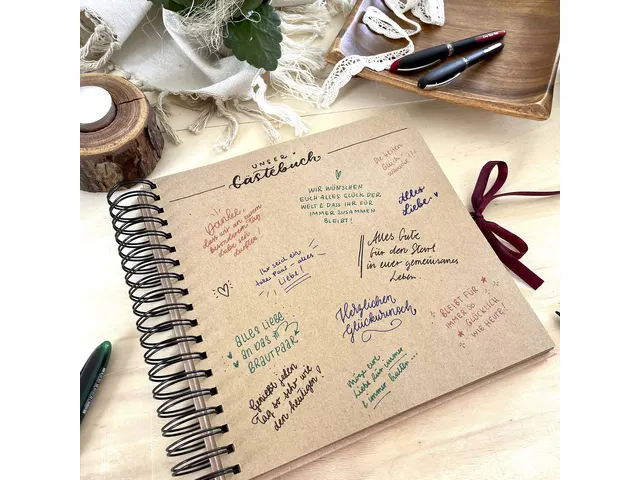 UNSER
Gästebuch
Die besten
Glück-
wünsche!!!
WIR WÜNSCHEN
EUCH ALLES GLÜCK DER
WELT & DASS IHR FÜR
IMMER ZUSAMMEN
BLEIBT!
Alles
Liebe
Danke,
dass wir an eurem
besonderen Tag
dabei sein
durften!
Alles Gute
für den Start
in euer gemeinsames
Leben
Ihr seid ein
tolles Paar - alles
Liebe!
Herzlichen
Glückwunsch
BLEIBT FÜR
IMMER SO
GLÜCKLICH
WIE HEUTE!
ALLES LIEBE
AN DAS
BRAUTPAAR
Genießt jeden
Tag so sehr wie
den heutigen!
Möge eure
Liebe für immer
& immer halten...